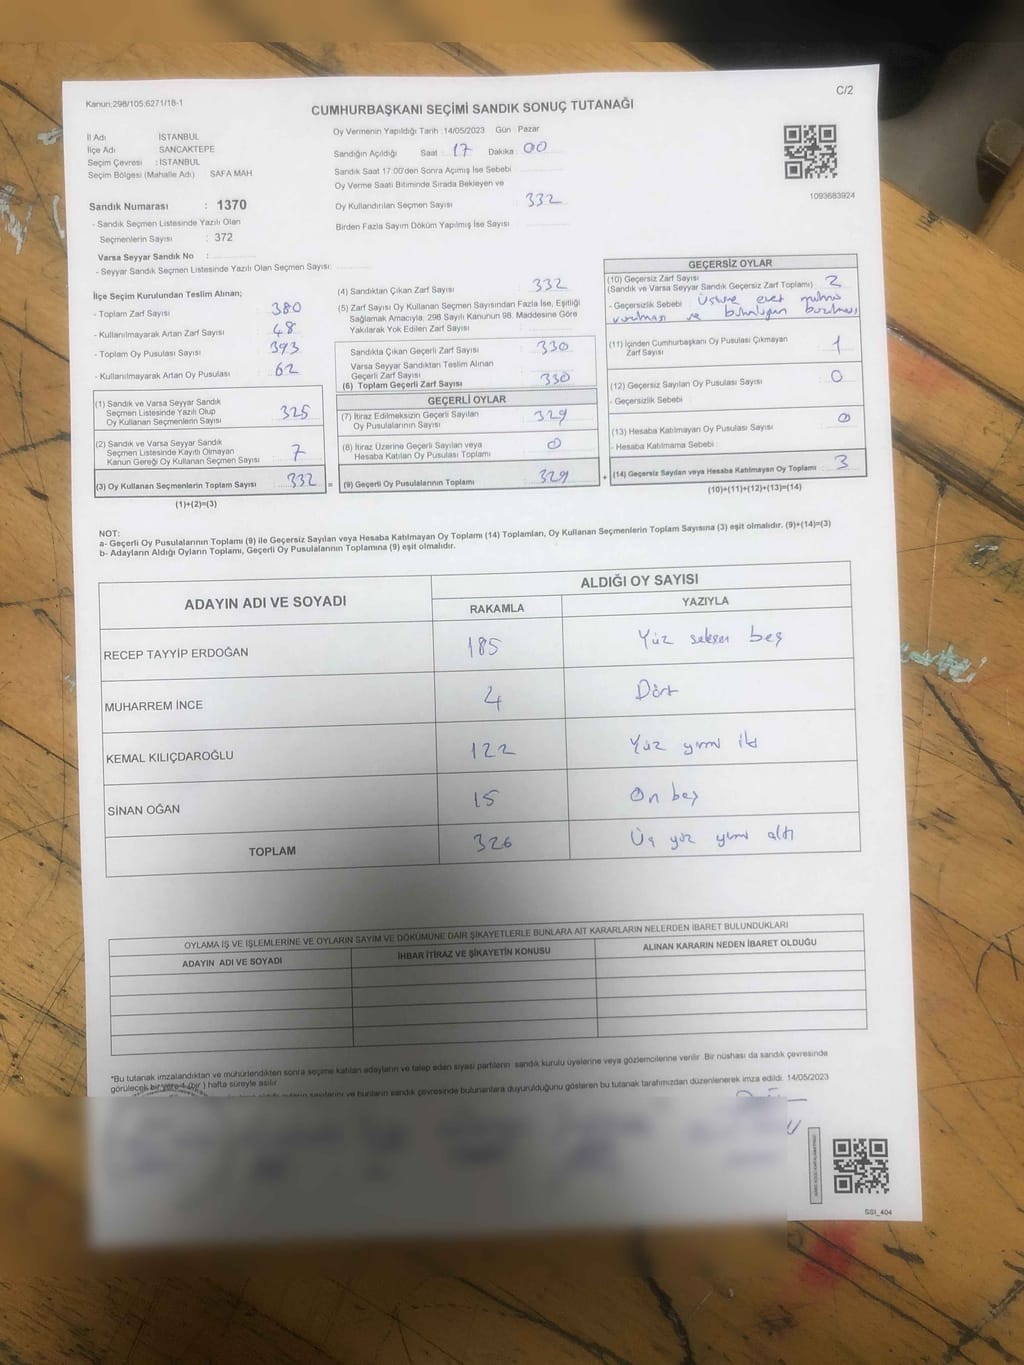 Kanun;298/105;6271/18-1
C/2
CUMHURBAŞKANI SEÇİMİ SANDIK SONUÇ TUTANAĞI
İl Adı İSTANBUL
İlçe Adı SANCAKTEPE
Seçim Çevresi : İSTANBUL
Seçim Bölgesi (Mahalle Adı) SAFA MAH
Sandık Numarası : 1370
- Sandık Seçmen Listesinde Yazılı Olan
Seçmenlerin Sayısı : 372
Varsa Seyyar Sandık No :
- Seyyar Sandık Seçmen Listesinde Yazılı Olan Seçmen Sayısı:
Oy Vermenin Yapıldığı Tarih :14/05/2023 Gün Pazar
Sandığın Açıldığı Saat : 17 Dakika 00
Sandık Saat 17.00'den Sonra Açımış İse Sebebi
Oy Verme Saati Bitiminde Sırada Bekleyen ve
Oy Kullandırılan Seçmen Sayısı : 332
Birden Fazla Sayım Döküm Yapılmış İse Sayısı
1093683924
İlçe Seçim Kurulundan Teslim Alınan;
- Toplam Zarf Sayısı : 380
- Kullanılmayarak Artan Zarf Sayısı : 48
- Toplam Oy Pusulası Sayısı : 393
- Kullanılmayarak Artan Oy Pusulası : 62
(1) Sandık ve Varsa Seyyar Sandık
Seçmen Listesinde Yazılı Olup
Oy Kullanan Seçmenlerin Sayısı 325
(2) Sandık ve Varsa Seyyar Sandık
Seçmen Listesinde Kayıtlı Olmayan
Kanun Gereği Oy Kullanan Seçmen Sayısı 7
(3) Oy Kullanan Seçmenlerin Toplam Sayısı 332 =
(1)+(2)=(3)
(4) Sandıktan Çıkan Zarf Sayısı : 332
(5) Zarf Sayısı Oy Kullanan Seçmen Sayısından Fazla İse, Eşitliği
Sağlamak Amacıyla; 298 Sayılı Kanunun 98. Maddesine Göre
Yakılarak Yok Edilen Zarf Sayısı :
Sandıkta Çıkan Geçerli Zarf Sayısı : 330
Varsa Seyyar Sandıktan Teslim Alınan
Geçerli Zarf Sayısı
(6) Toplam Geçerli Zarf Sayısı : 330
GEÇERLİ OYLAR
(7) İtiraz Edilmeksizin Geçerli Sayılan
Oy Pusulalarının Sayısı 329
(8) İtiraz Üzerine Geçerli Sayılan veya
Hesaba Katılan Oy Pusulası Toplamı 0
(9) Geçerli Oy Pusulalarının Toplamı 329 +
GEÇERSİZ OYLAR
(10) Geçersiz Zarf Sayısı
(Sandık ve Varsa Seyyar Sandık Geçersiz Zarf Toplamı) 2
- Geçersizlik Sebebi : üstüne evet mührü
vurulması ve bütünlüğün bozulması
(11) İçinden Cumhurbaşkanı Oy Pusulası Çıkmayan
Zarf Sayısı 1
(12) Geçersiz Sayılan Oy Pusulası Sayısı 0
- Geçersizlik Sebebi
(13) Hesaba Katılmayan Oy Pusulası Sayısı 0
- Hesaba Katılmama Sebebi
(14) Geçersiz Sayılan veya Hesaba Katılmayan Oy Toplamı 3
(10)+(11)+(12)+(13)=(14)
NOT:
a- Geçerli Oy Pusulalarının Toplamı (9) ile Geçersiz Sayılan veya Hesaba Katılmayan Oy Toplamı (14) Toplamları, Oy Kullanan Seçmenlerin Toplam Sayısına (3) eşit olmalıdır. (9)+(14)=(3)
b- Adayların Aldığı Oyların Toplamı, Geçerli Oy Pusulalarının Toplamına (9) eşit olmalıdır.
ADAYIN ADI VE SOYADI ALDIĞI OY SAYISI
RAKAMLA YAZIYLA
RECEP TAYYİP ERDOĞAN 185 Yüz seksen beş
MUHARREM İNCE 4 Dört
KEMAL KILIÇDAROĞLU 122 Yüz yirmi iki
SİNAN OĞAN 15 On beş
TOPLAM 326 Üç yüz yirmi altı
OYLAMA İŞ VE İŞLEMLERİNE VE OYLARIN SAYIM VE DÖKÜMÜNE DAİR ŞİKAYETLERLE BUNLARA AİT KARARLARIN NELERDEN İBARET BULUNDUKLARI
ADAYIN ADI VE SOYADI İHBAR İTİRAZ VE ŞİKAYETİN KONUSU ALINAN KARARIN NEDEN İBARET OLDUĞU
*Bu tutanak imzalandıktan ve mühürlendikten sonra seçime katılan adayların ve talep eden siyasi partilerin sandık kurulu üyelerine veya gözlemcilerine verilir. Bir nüshası da sandık çevresinde
görülecek bir yere 1 (bir ) hafta süreyle asılır.
sandık çevresinde bulunanlara duyurulduğunu gösteren bu tutanak tarafımızdan düzenlenerek imza edildi. 14/05/2023
SSI_404